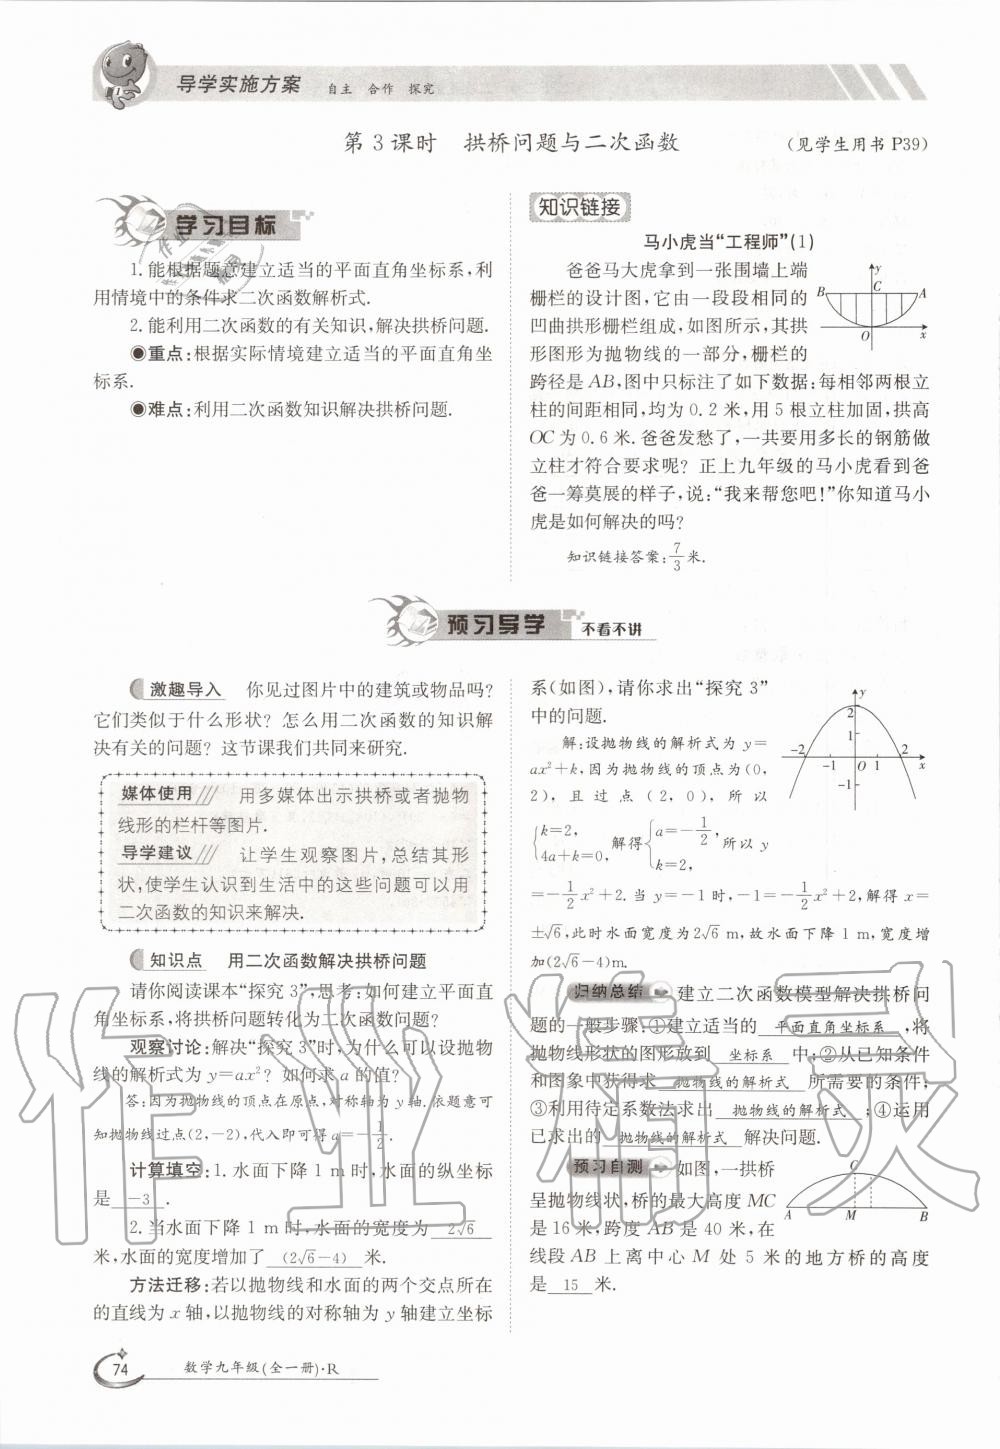 导学实施方案 自主 合作 探究
第3课时 拱桥问题与二次函数 (见学生用书P39)
学习目标
1.能根据题意建立适当的平面直角坐标系,利
用情境中的条件求二次函数解析式.
2.能利用二次函数的有关知识,解决拱桥问题.
◉重点:根据实际情境建立适当的平面直角坐
标系.
◉难点:利用二次函数知识解决拱桥问题.
知识链接
马小虎当“工程师”(1)
爸爸马大虎拿到一张围墙上端
栅栏的设计图,它由一段段相同的
凹曲拱形栅栏组成,如图所示,其拱
形图形为抛物线的一部分,栅栏的
跨径是AB,图中只标注了如下数据:每相邻两根立
柱的间距相同,均为0.2米,用5根立柱加固,拱高
OC为0.6米.爸爸发愁了,一共要用多长的钢筋做
立柱才符合要求呢?正上九年级的马小虎看到爸
爸一筹莫展的样子,说:“我来帮您吧!”你知道马小
虎是如何解决的吗?
知识链接答案:7/3米.
y
B C A
O x
预习导学 不看不讲
激趣导入 你见过图片中的建筑或物品吗?
它们类似于什么形状?怎么用二次函数的知识解
决有关的问题?这节课我们共同来研究.
媒体使用 用多媒体出示拱桥或者抛物
线形的栏杆等图片.
导学建议 让学生观察图片,总结其形
状,使学生认识到生活中的这些问题可以用
二次函数的知识来解决.
知识点 用二次函数解决拱桥问题
请你阅读课本“探究3”,思考:如何建立平面直
角坐标系,将拱桥问题转化为二次函数问题?
观察讨论:解决“探究3”时,为什么可以设抛物
线的解析式为y=ax²?如何求a的值?
答:因为抛物线的顶点在原点,对称轴为y轴.依题意可
知抛物线过点(2,-2),代入即可得a=-1/2.
计算填空:1.水面下降1 m时,水面的纵坐标
是 -3 .
2.当水面下降1 m时,水面的宽度为 2√6
米,水面的宽度增加了 (2√6-4) 米.
方法迁移:若以抛物线和水面的两个交点所在
的直线为x轴,以抛物线的对称轴为y轴建立坐标
系(如图),请你求出“探究3”
中的问题.
解:设抛物线的解析式为y=
ax²+k,因为抛物线的顶点为(0,
2),且过点(2,0),所以
{k=2, 4a+k=0, 解得{a=-1/2, k=2, 所以y
=-1/2x²+2.当y=-1时,-1=-1/2x²+2,解得x=
±√6,此时水面宽度为2√6 m,故水面下降1 m,宽度增
加(2√6-4)m.
y
2
1
-2 -1 O 1 2 x
-1
归纳总结 建立二次函数模型解决拱桥问
题的一般步骤:①建立适当的 平面直角坐标系 ,将
抛物线形状的图形放到 坐标系 中;②从已知条件
和图象中获得求 抛物线的解析式 所需要的条件;
③利用待定系数法求出 抛物线的解析式 ;④运用
已求出的 抛物线的解析式 解决问题.
预习自测 如图,一拱桥
呈抛物线状,桥的最大高度MC
是16米,跨度AB是40米,在
线段AB上离中心M处5米的地方桥的高度
是 15 米.
C
A M B
74 数学九年级(全一册)·R
作业精灵